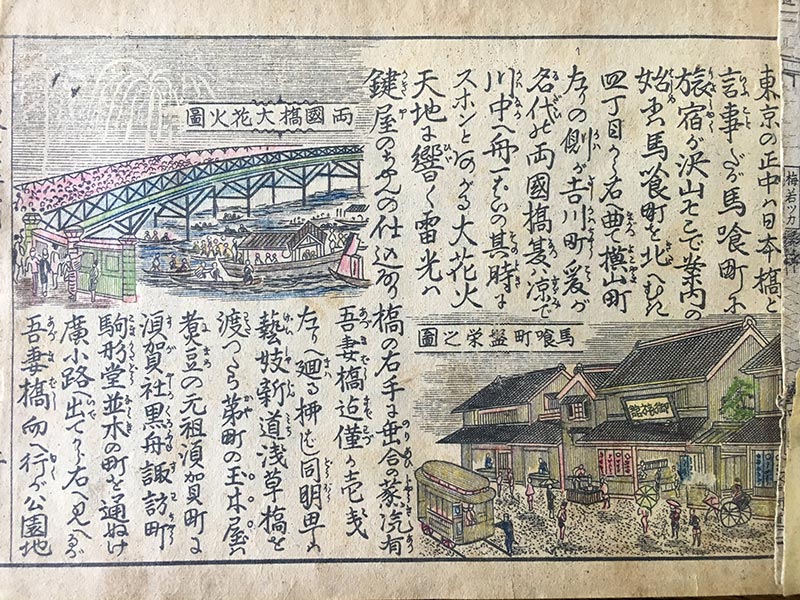 東京の正中ハ日本橋と
言事だが馬喰町に
旅宿が沢山そこで案内の
馬喰町を北へむけ
四丁目から右曲り横山町
左りの側が吉川町爰が
名代の両國橋夏ハ凉で
川中へ舟一ぱい其時に
スポンとあがる大花火
天地に響く雷光ハ
鍵屋のちやんの仕込
両國橋大花火圖
馬喰町盤栄之圖
橋の右手に乗合の蒸汽有
吾妻橋迠僅か壱戔
左りへ廻る柳ばし同朋町の
藝妓新道浅草橋を
渡つたら茅町の玉木屋ハ
煮豆の元祖須賀町に
須賀社黒舟諏訪町
駒形堂並木の町を通ぬけ
廣小路へ出てから右へ見へるが
吾妻橋向へ行が公園地
梅若ツカ